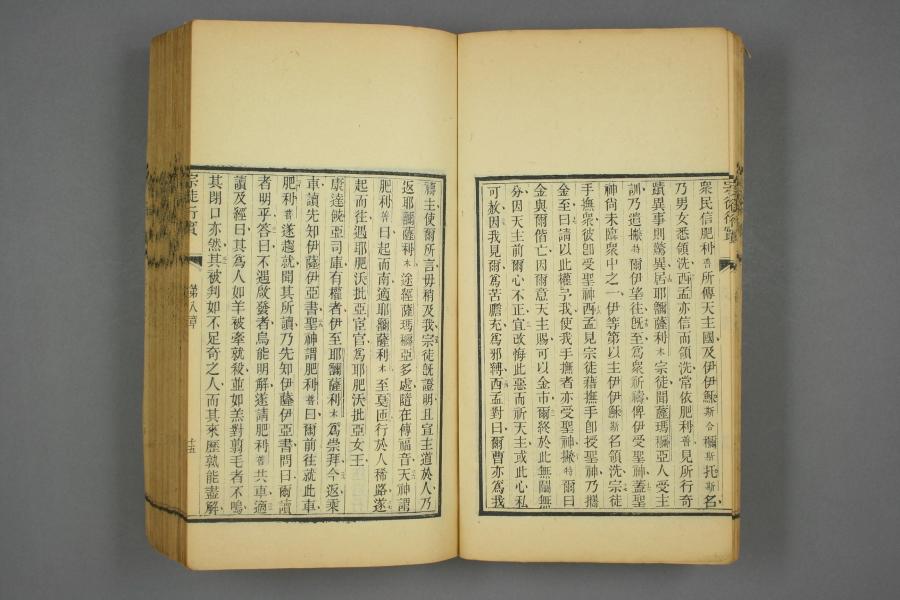 宗徒行實
衆民信肥利普所傳天主國及伊伊穌斯合櫩斯托斯名
乃男女悉領洗西孟亦信而領洗常依肥利普見所行奇
蹟異事則驚異居耶嚻薩利木宗徒聞薩瑪櫩亞人受主
訓乃遣撇特爾伊望往旣至衆祈禱俾伊受聖神蓋聖
神尚未臨衆中之一伊等第以主伊伊穌斯名領洗宗徒
手撫衆彼卽受聖神西孟見宗徒藉撫手卽授聖神乃攜
金至曰請以此權予我使我手撫者亦受聖神撇特爾曰
金與爾偕亡因爾意天主賜可以金市爾終於此無關無
分因天主前爾心不正宜改悔此惡而祈天主或此心私
可赦因我見爾爲苦膽充爲邪縛西孟對曰爾曹亦爲我
禱主使爾所言毋稍及我宗徒旣證明且宣主道於人乃
返耶嚻薩利木途經薩瑪櫩亞多處隨在傳福音天神謂
肥利普曰起而南適耶嚻薩利木至戛匝行於人稀路遂
起而往遇耶肥沃批亞宦官爲耶肥沃批亞女王
康達餤亞司庫有權者伊至耶嚻薩利木爲崇拜今返乘
車讀先知伊薩伊亞書聖神謂肥利普曰爾前往就此車
肥利普遂趨就聞其所讀乃先知伊薩伊亞書問曰爾讀
者明乎答曰不遇啟發者烏能明解遂請肥利普共車適
讀及經曰其爲人如羊被牽就殺並如羔對翦毛者不鳴
其閉口亦然其被判如不足奇之人而其來歷孰能盡解
宗徒行實
第八章
十五